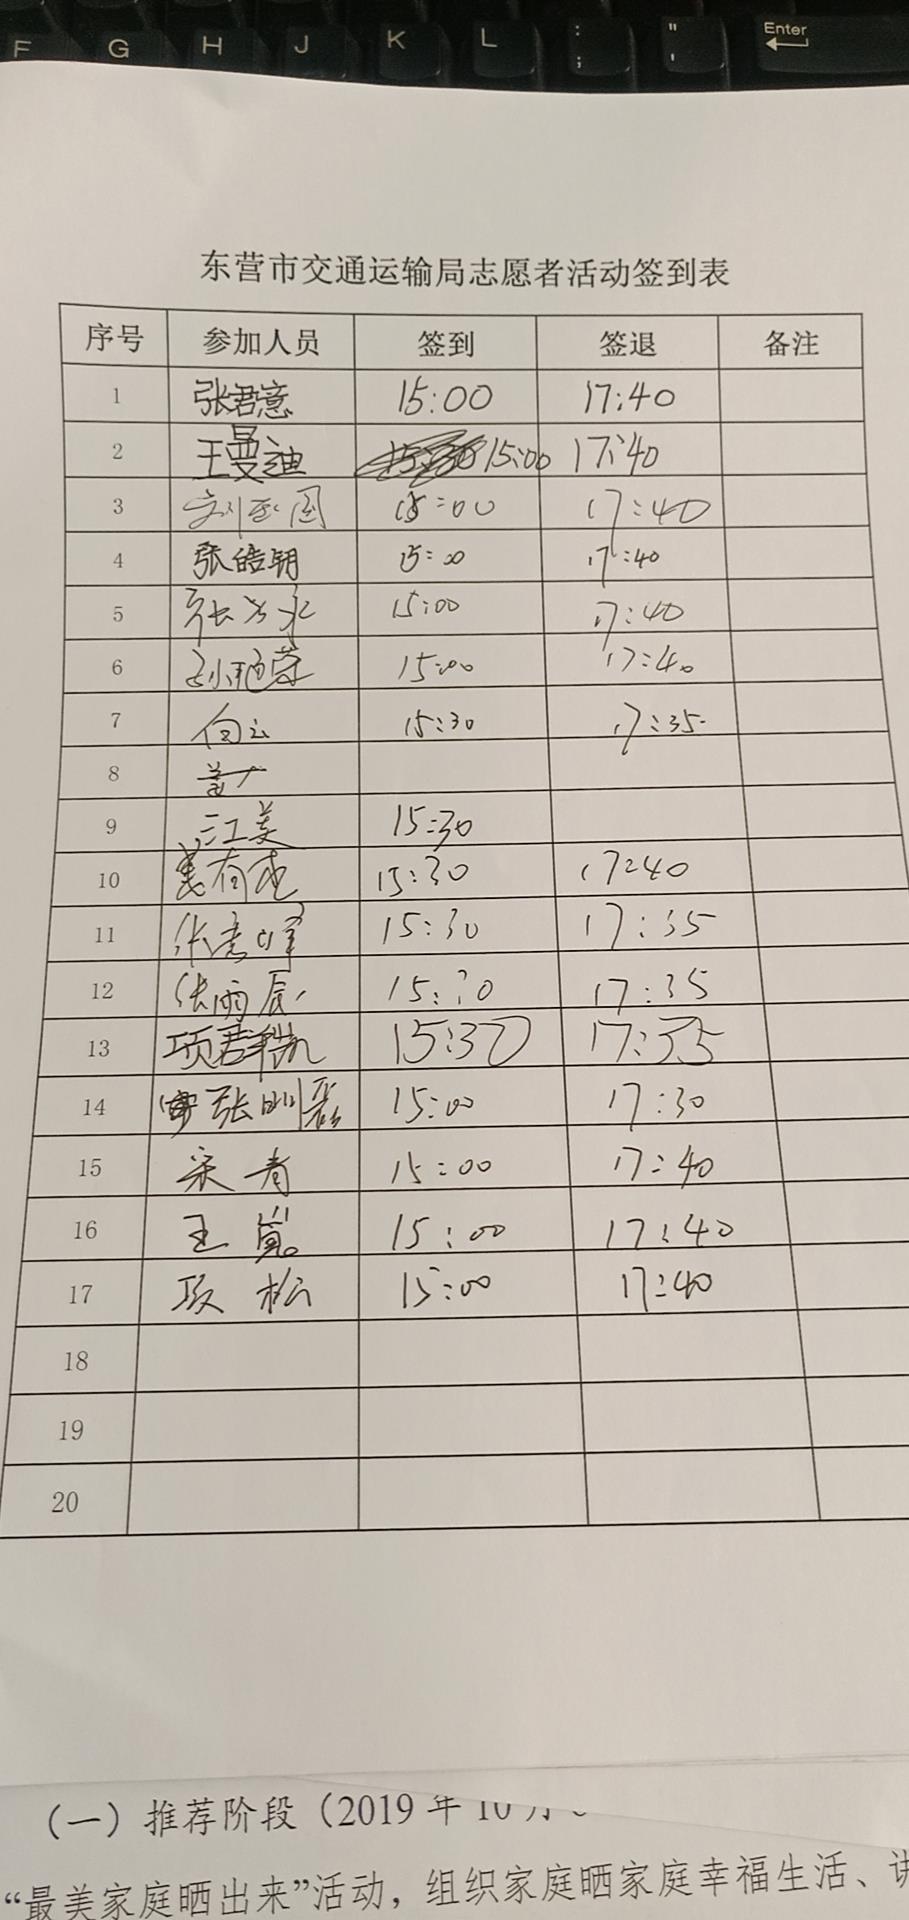 F G H J K L : ; " ' Enter
东营市交通运输局志愿者活动签到表
序号 参加人员 签到 签退 备注
1 张君意 15:00 17:40
2 王曼迪 15:00 17:40
3 15:00 17:40
4 张皓玥 15:00 17:40
5 张 15:00 17:40
6 孙艳荣 15:00 17:40
7 向云 15:30 17:35
8
9 江美 15:30
10 15:30 17:40
11 张 峰 15:30 17:35
12 张雨辰 15:30 17:35
13 项君 15:30 17:35
14 张 15:00 17:30
15 15:00 17:40
16 王嵐 15:00 17:40
17 项松 15:00 17:40
18
19
20
（一）推荐阶段（2019年10月
“最美家庭晒出来”活动，组织家庭晒家庭幸福生活、讲